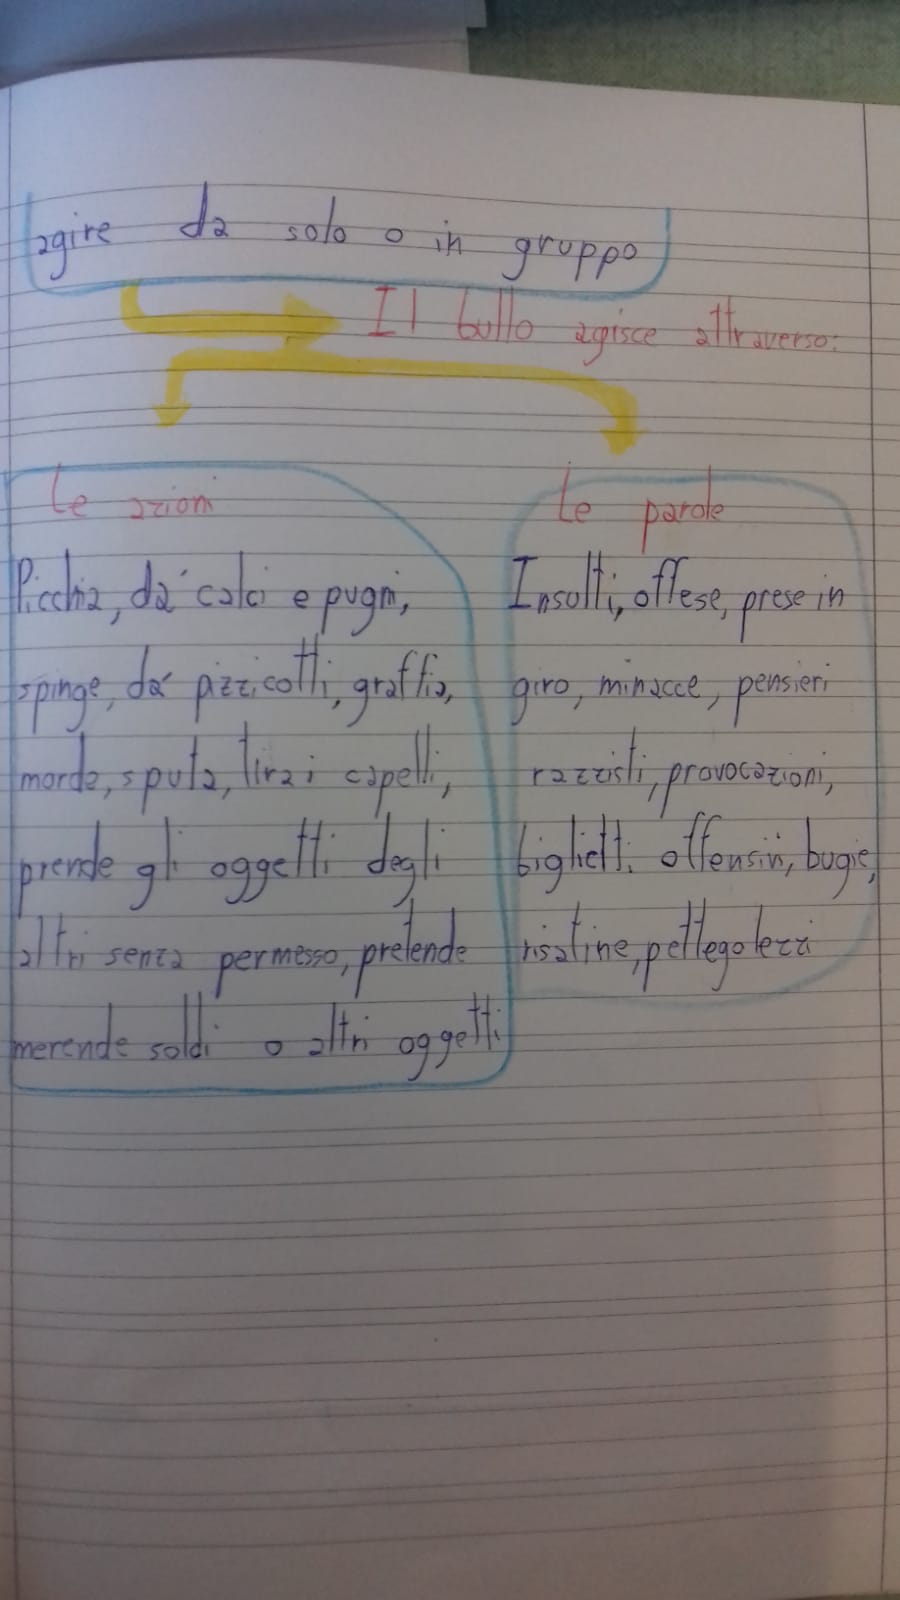 agire da solo o in gruppo
Il bullo agisce attraverso:
Le azioni
Picchia, dá calci e pugni,
spinge, dá pizzicotti, graffia,
morde, sputa, tira i capelli,
prende gli oggetti degli
altri senza permesso, pretende
merende soldi o altri oggetti
Le parole
Insulti, offese, prese in
giro, minacce, pensieri
razzisti, provocazioni,
biglietti offensivi, bugie,
risatine, pettegolezzi